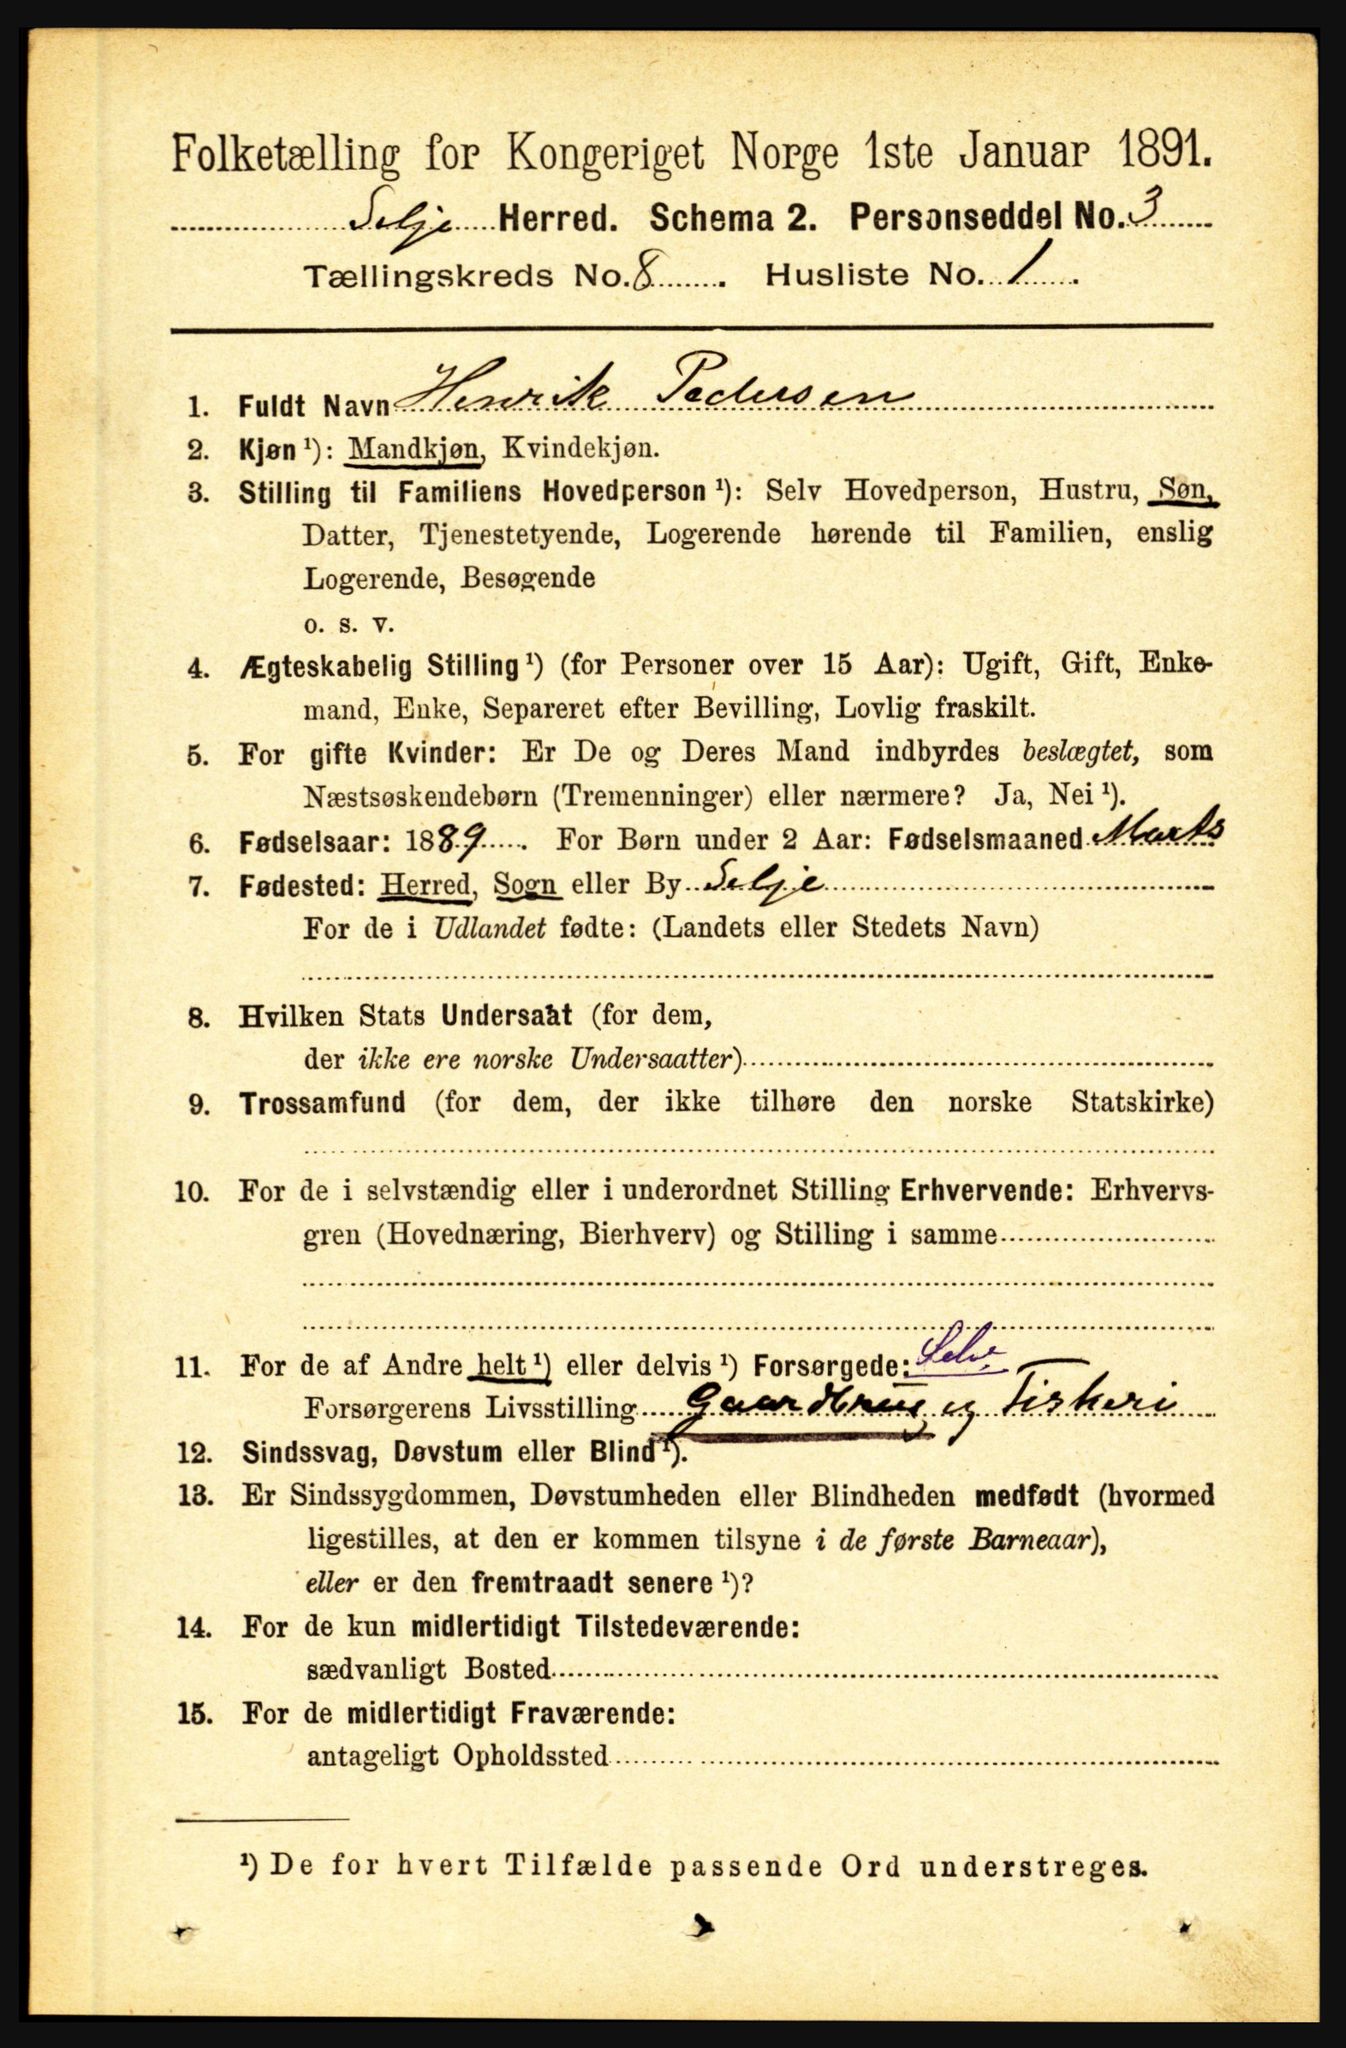 Folketælling for Kongeriget Norge 1ste Januar 1891.
Selje Herred. Schema 2. Personseddel No. 3
Tællingskreds No. 8. Husliste No. 1.
1. Fuldt Navn Henrik Pedersen
2. Kjøn ¹): Mandkjøn, Kvindekjøn.
3. Stilling til Familiens Hovedperson ¹): Selv Hovedperson, Hustru, Søn,
Datter, Tjenestetyende, Logerende hørende til Familien, enslig
Logerende, Besøgende
o. s. v.
4. Ægteskabelig Stilling ¹) (for Personer over 15 Aar): Ugift, Gift, Enke-
mand, Enke, Separeret efter Bevilling, Lovlig fraskilt.
5. For gifte Kvinder: Er De og Deres Mand indbyrdes beslægtet, som
Næstsøskendebørn (Tremenninger) eller nærmere? Ja, Nei ¹).
6. Fødselsaar: 1889. For Børn under 2 Aar: Fødselsmaaned Marts
7. Fødested: Herred, Sogn eller By Selje
For de i Udlandet fødte: (Landets eller Stedets Navn)
8. Hvilken Stats Undersaat (for dem,
der ikke ere norske Undersaatter)
9. Trossamfund (for dem, der ikke tilhøre den norske Statskirke)
10. For de i selvstændig eller i underordnet Stilling Erhvervende: Erhvervs-
gren (Hovednæring, Bierhverv) og Stilling i samme
11. For de af Andre helt ¹) eller delvis ¹) Forsørgede: Selv
Forsørgerens Livsstilling Gaardbrug og Fiskeri
12. Sindssvag, Døvstum eller Blind ¹).
13. Er Sindssygdommen, Døvstumheden eller Blindheden medfødt (hvormed
ligestilles, at den er kommen tilsyne i de første Barneaar),
eller er den fremtraadt senere ¹)?
14. For de kun midlertidigt Tilstedeværende:
sædvanligt Bosted
15. For de midlertidigt Fraværende:
antageligt Opholdssted
¹) De for hvert Tilfælde passende Ord understreges.